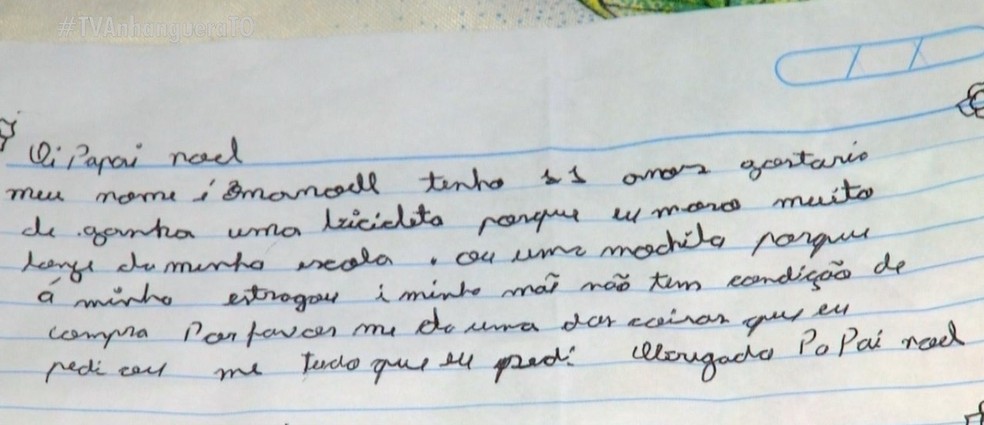 #TVAnhangueraTO
Oi Papai noel
meu nome é Emanoell tenho 11 anos gostario
de ganha uma bicicleta porque eu moro muito
longe da minha escola . ou uma mochila porque
á minha estragou i minha mãe não tem condição de
compra Por favor me da uma das coisas que eu
pedi ou me tudo que eu pedi Obrigado Papai noel